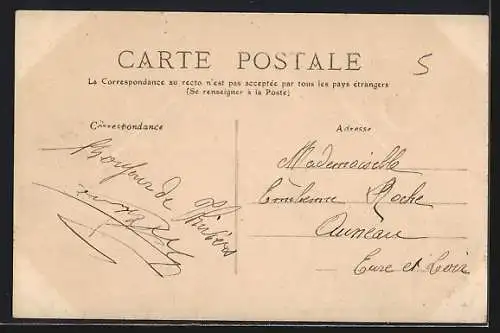 CARTE POSTALE
5
La Correspondance au recto n'est pas acceptée par tous les pays étrangers
(Se renseigner à la Poste)
Correspondance
Bonjour de
Adresse
Mademoiselle
Roche
Auneau
Eure et Loir